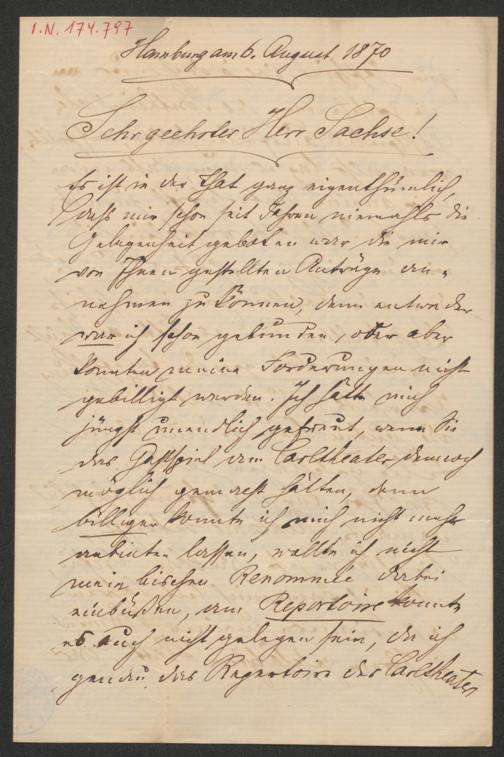 I.N. 174.797
Hamburg am 6. August 1870
Sehr geehrter Herr Sachse!
Es ist in der That ganz eigenthümlich,
daß mir schon seit Jahren niemahls die
Gelegenheit geboten war die mir
von Ihnen gestellten Anträge an-
nehmen zu können, denn entweder
war ich schon gebunden, oder aber
konnten meine Forderungen nicht
gebilligt werden. Ich hätte mich
jüngst unendlich gefreut, wenn Sie
das Gastspiel am Carltheater dennoch
möglich gemacht hätten, denn
billiger konnte ich mich nicht mehr
anbieten lassen, wollte ich nicht
mein bischen Renommée dabei
einbüßen, am Repertoire konnte
es auch nicht gelegen sein, da ich
genau das Repertoire des Carltheater